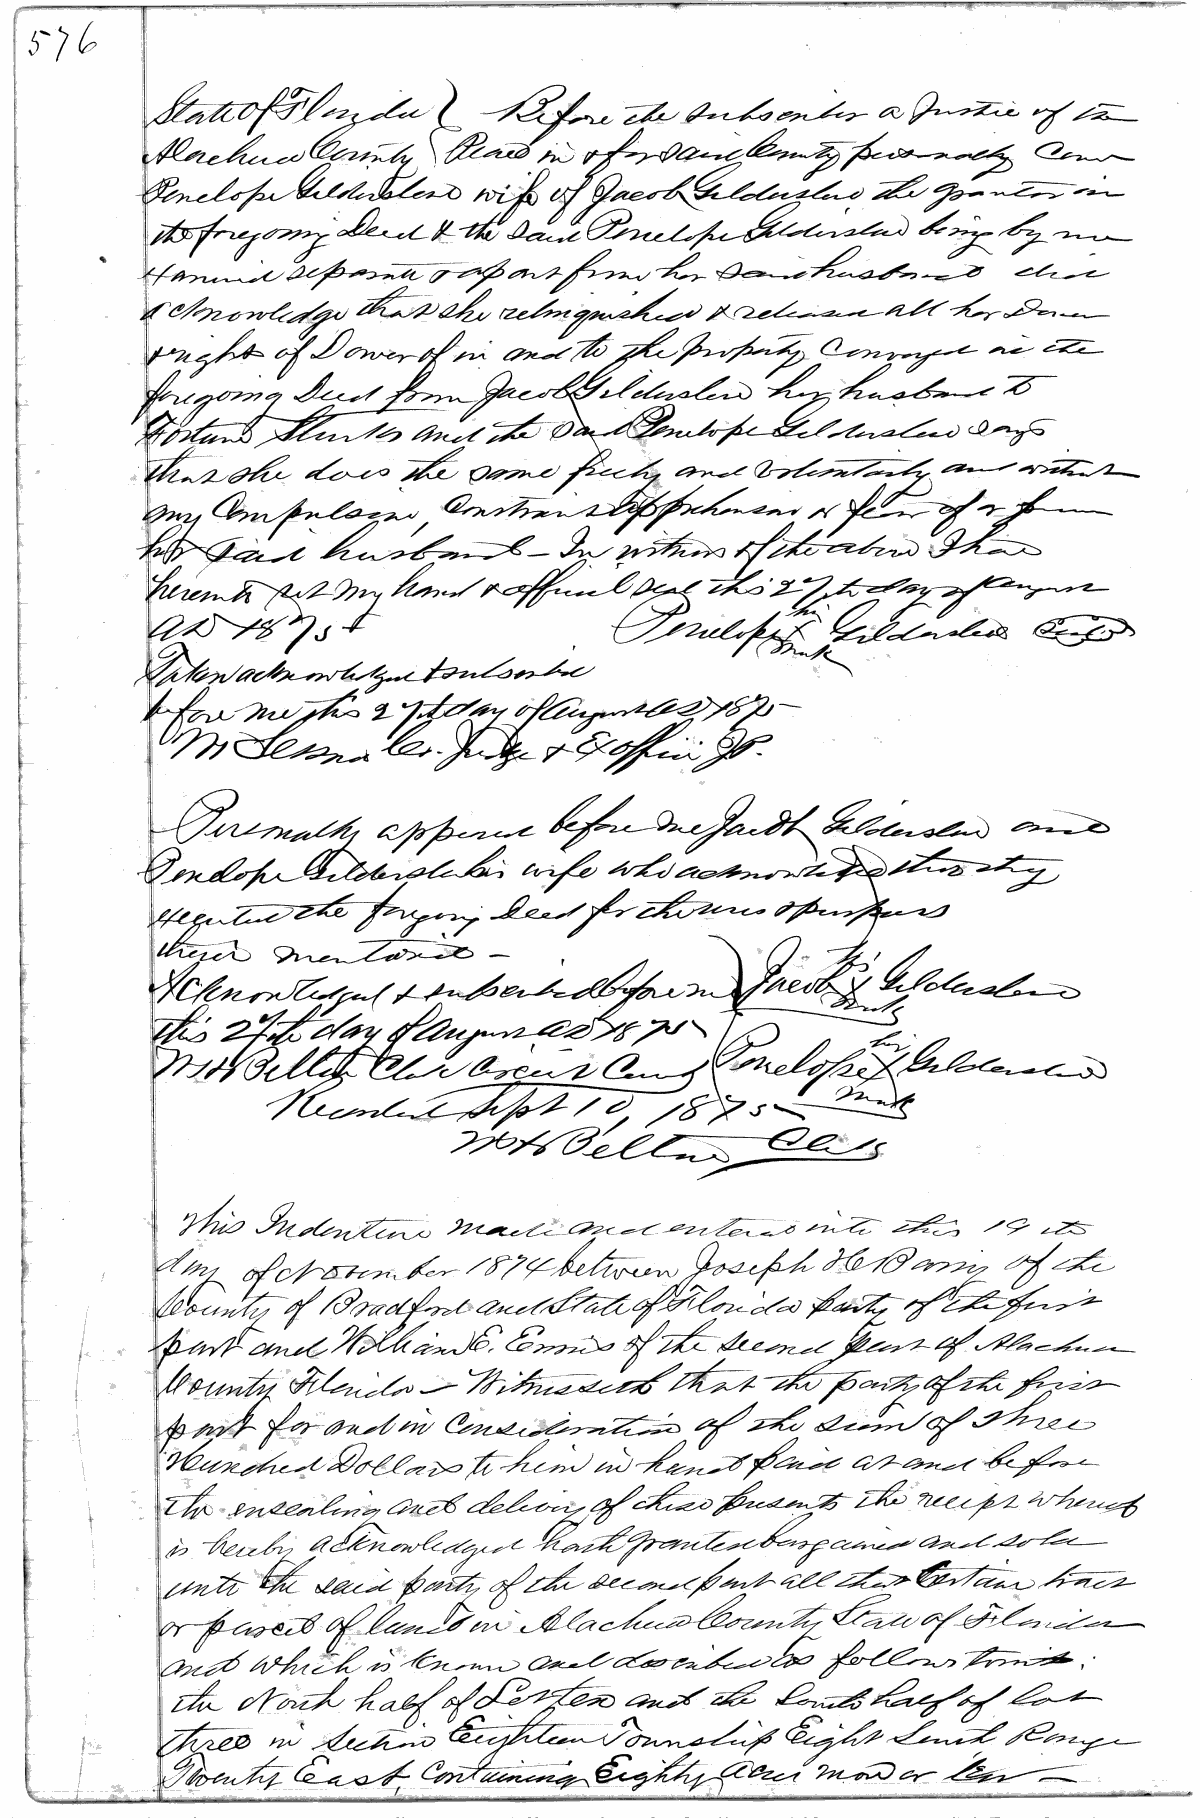 576
State of Florida } Before the subscriber a Justice of the
Alachua County } Peace in & for said County personally came
Penelope Gildersleve wife of Jacob Gildersleve the grantor in
the foregoing Deed & the said Penelope Gildersleve being by me
Examined separate & apart from her said husband did
acknowledge that she relinquished & released all her Dower
& right of Dower of in and to the property Conveyed in the
foregoing Deed from Jacob Gildersleve her husband to
Fortune and the said Penelope Gildersleve says
that she does the same freely and voluntarily and without
any Compulsion, Constraint Apprehension or fear of or from
her said husband - In witness of the above I have
hereunto set my hand & official seal this 27th day of August
AD 1875 Penelope her x mark Gildersleve Seal
Taken acknowledged & subscribed
before me this 27th day of August AD 1875
Co. Judge & Ex officio JP.
Personally appeared before me Jacob Gildersleve and
Penelope Gildersleve his wife who acknowledged that they
executed the foregoing Deed for the uses & purposes
therein mentioned -
Acknowledged & subscribed before me } Jacob his x mark Gildersleve
this 27th day of August AD 1875
W H Belton Clk Circuit Court } Penelope her x mark Gildersleve
Recorded Sept 10, 1875
W H Belton Clerk
This Indenture made and entered into this 19th
day of November 1874 between Joseph H Barry of the
County of Bradford and State of Florida party of the first
part and William E. Ennis of the second part of Alachua
County Florida - Witnesseth that the party of the first
part for and in Consideration of the sum of Three
Hundred Dollars to him in hand paid at and before
the ensealing and delivery of these presents the receipt whereof
is hereby acknowledged hath granted bargained and sold
unto the said party of the second part all that Certain tract
or parcel of land in Alachua County State of Florida
and which is known and described as follows towit:
the North half of Lot ten and the South half of lot
three in Section Eighteen Township Eight South Range
Twenty East, Containing Eighty Acres more or less -